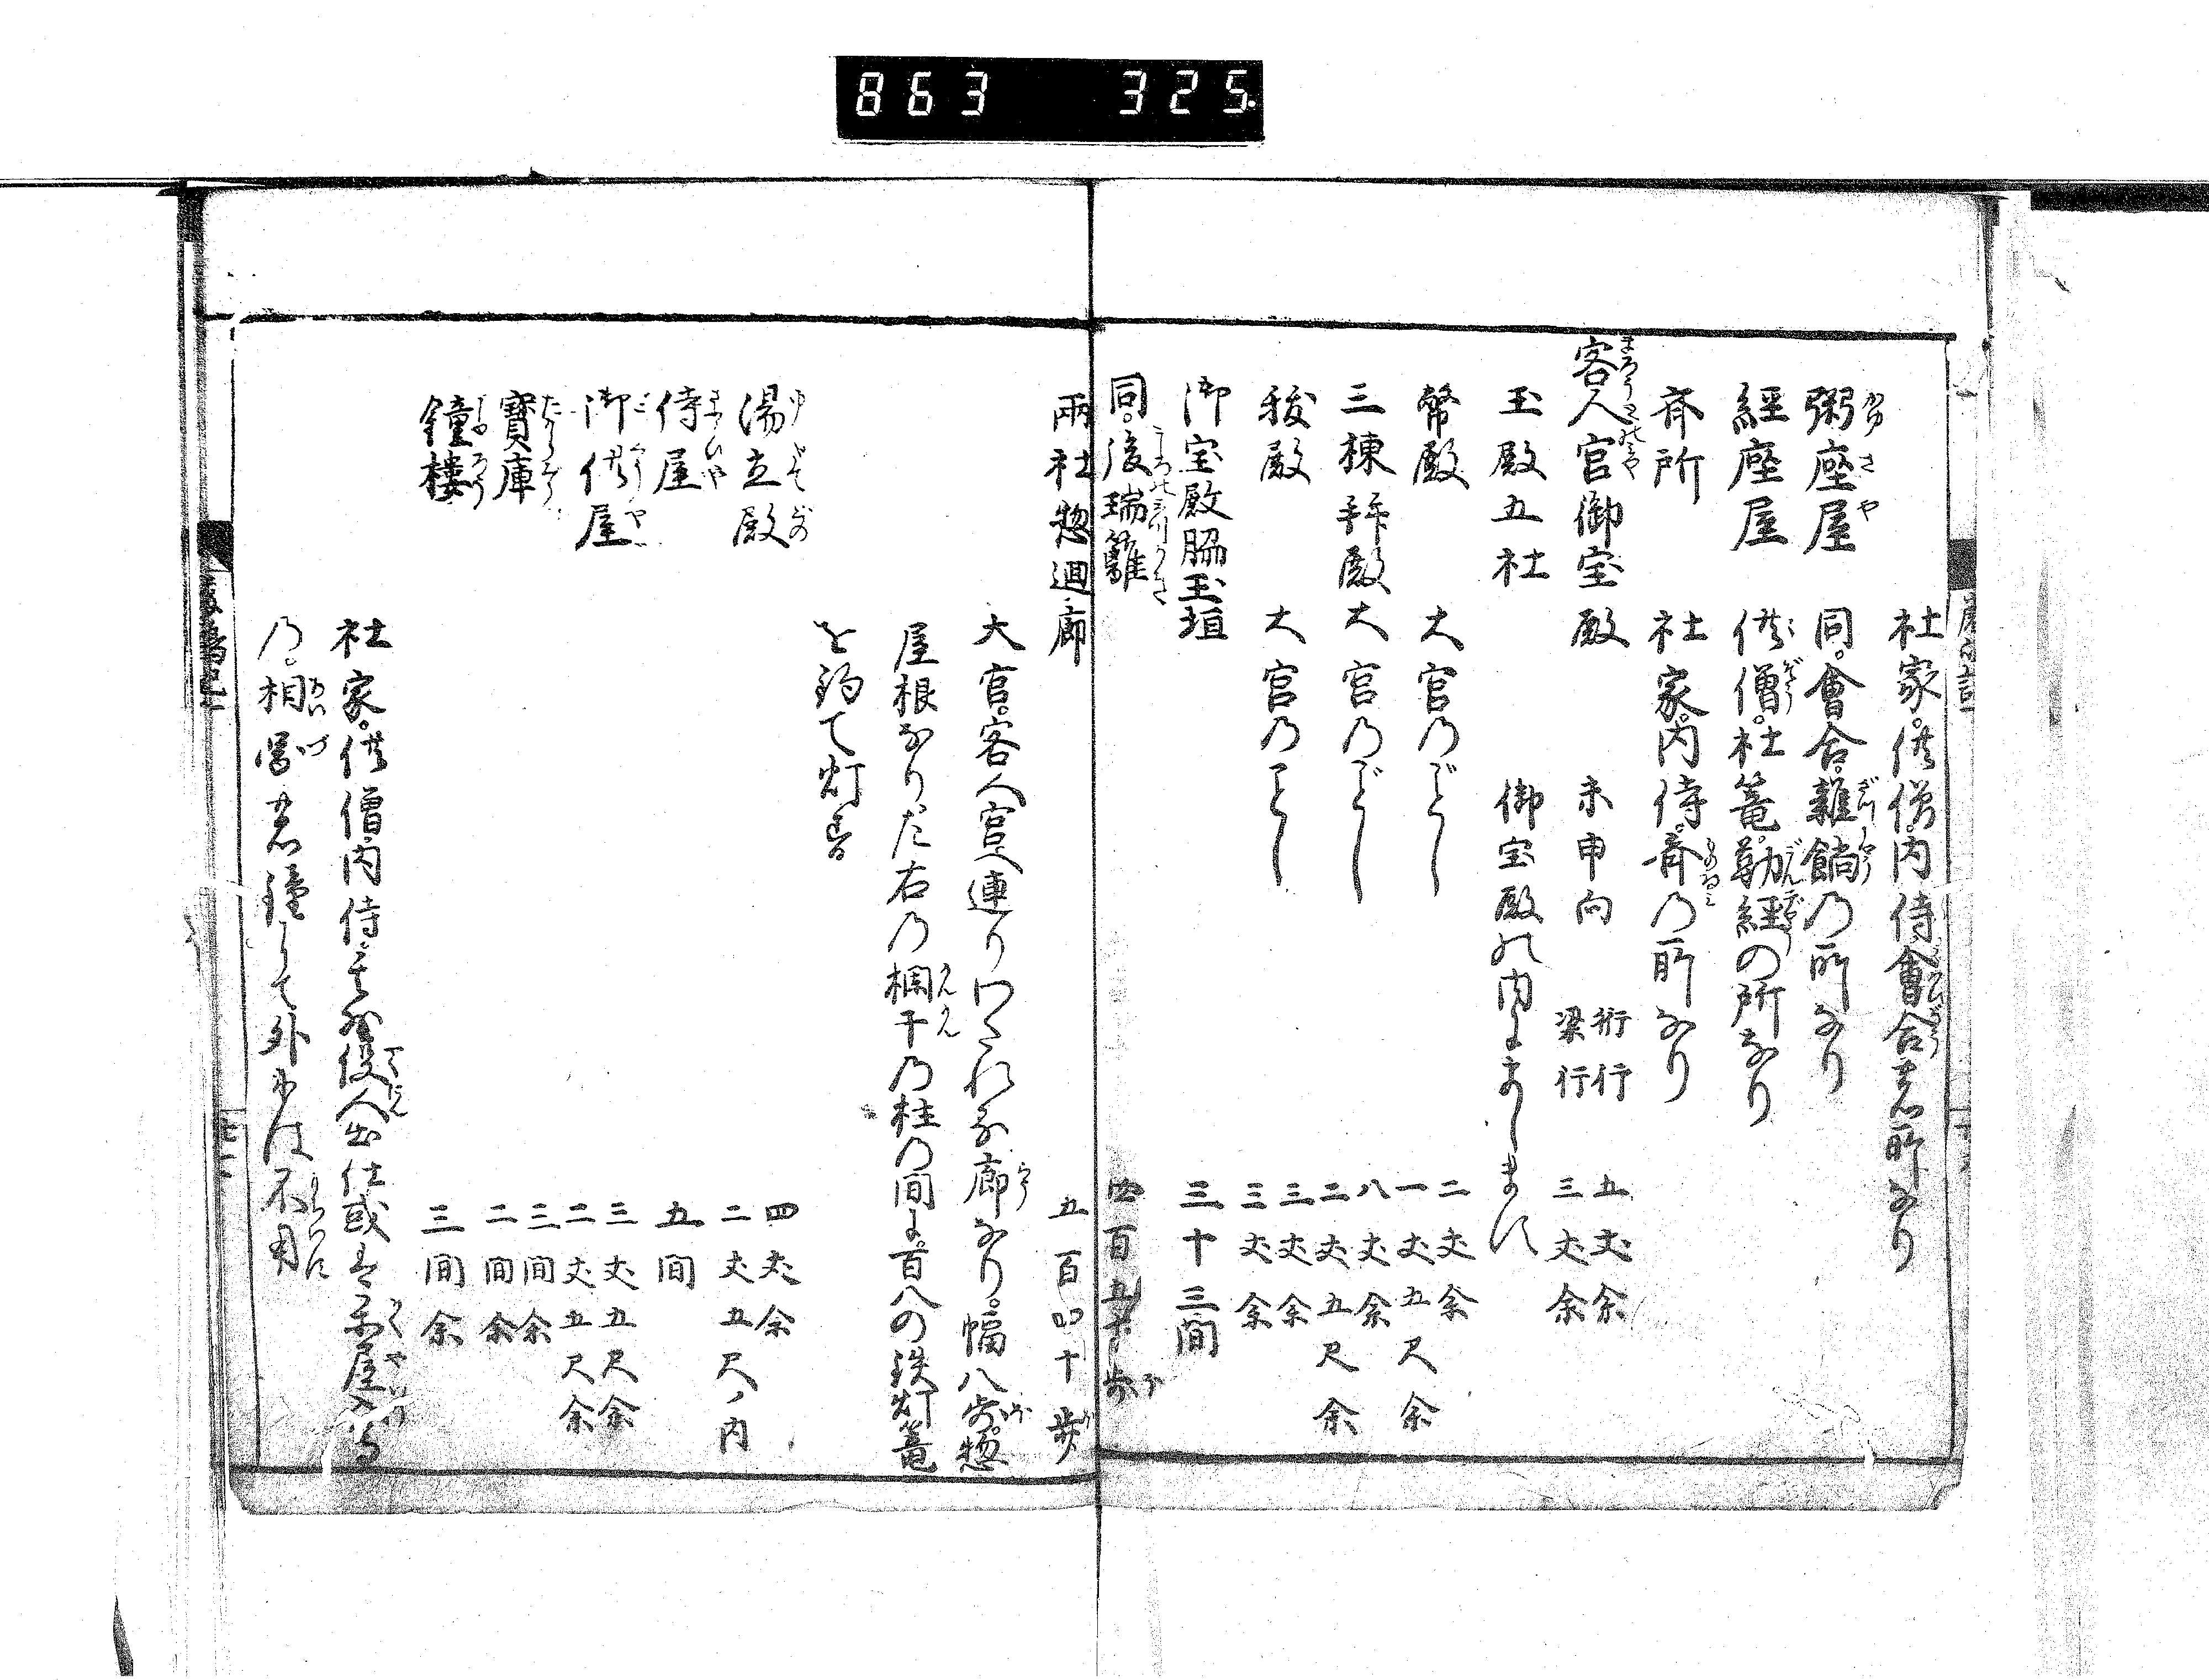 863 325
社家。供僧。内侍會合の所なり
粥座屋 同。會合。雑餉乃所なり
経座屋 供僧。社篭。勤経の所なり
斉所 社家。内侍。斉乃所なり
客人宮御宝殿 未申向 桁行 五丈余
梁行 三丈余
玉殿五社 御宝殿の内にまします
幣殿 大宮乃ごとし 二丈余
一丈五尺余
三棟拝殿 大宮乃ごとし 八丈余
二丈五尺余
祓殿 大宮乃ごとし 三丈余
三丈余
御宝殿脇玉垣 三十三間
同。後瑞籬 四百五十歩
両社惣廻廊 五百四十歩
大宮。客人宮へ連りわたれる廊なり。幅八歩。惣
屋根なり左右乃欄干乃柱乃間に。百八の鉄灯篭
を釣て灯す
湯立殿 四丈余
二丈五尺ノ内
侍屋 五間
御供屋 三丈五尺余
二丈五尺余
寶庫 三間余
二間余
鐘楼 三間余
社家。供僧。内侍。其外役人出仕或は楽屋入等
乃。相図の鐘にて外には不用